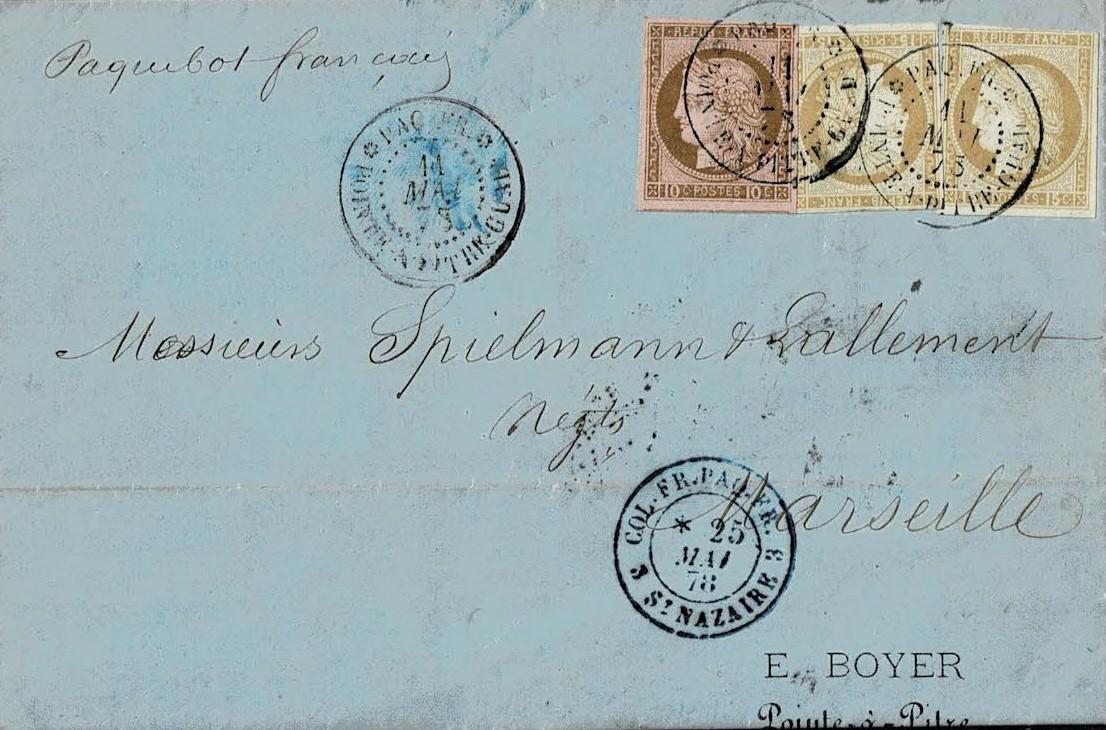 Paquebot français
REPUB·FRANC·
10 c POSTES 10 c
REPUB·FRANC·
15 c
PAQ.FR.
11
MAI
78
POINTE-A-PITRE·GUAD
Messieurs Spielmann & Lallement
Négts
Marseille
COL.FR.PAQ.FR.
* 25
MAI
78
3 ST NAZAIRE 3
E. BOYER
Pointe-à-Pitre